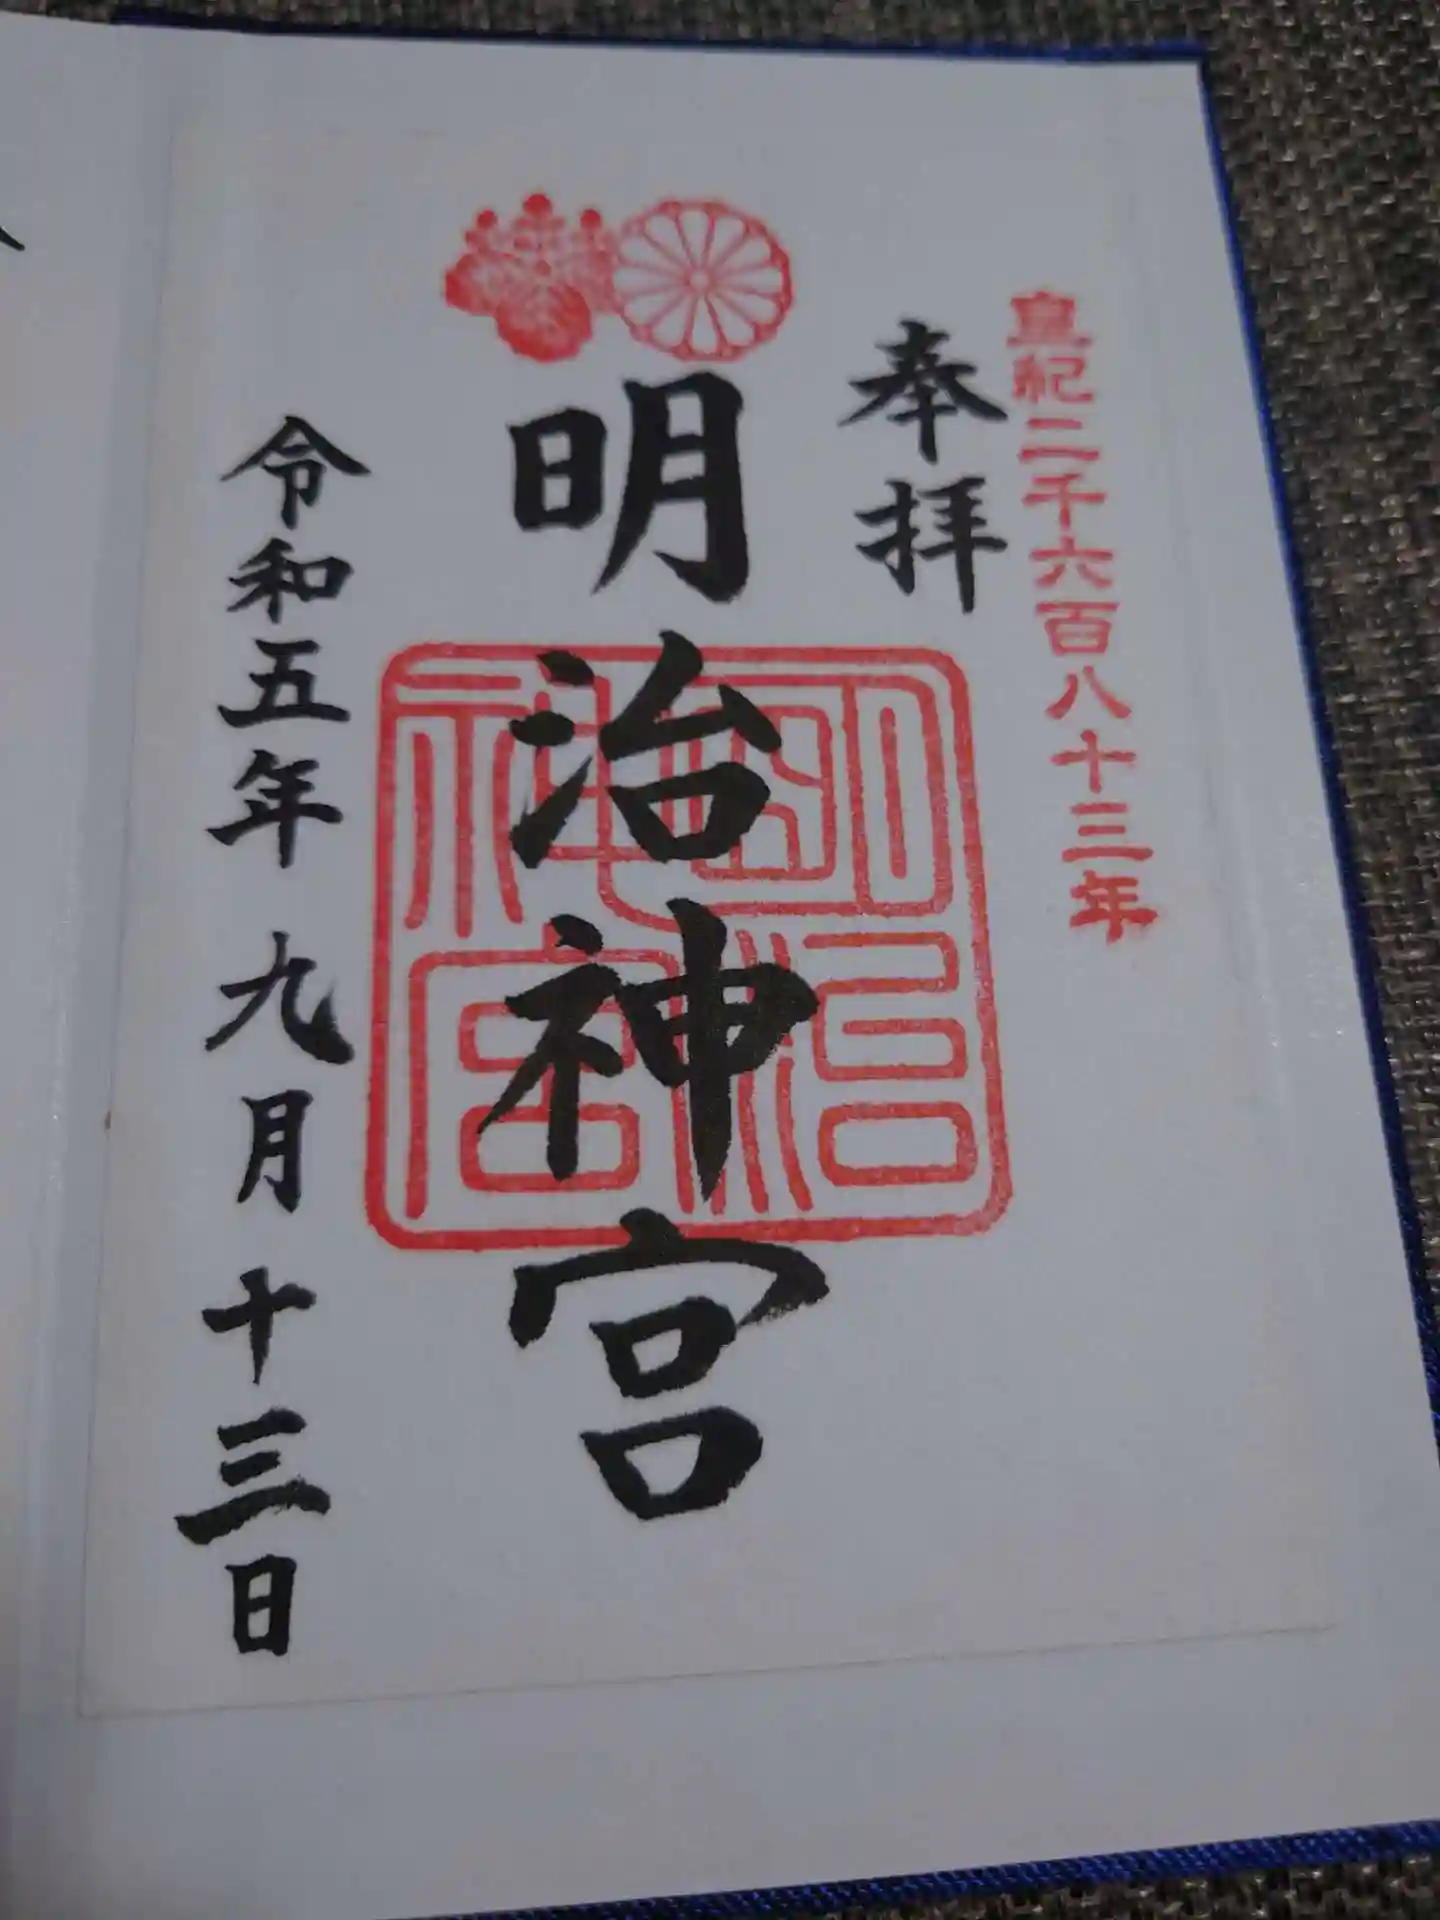 皇紀二千六百八十三年
奉拝
明治神宮
明治神宮
令和五年 九月 十三日